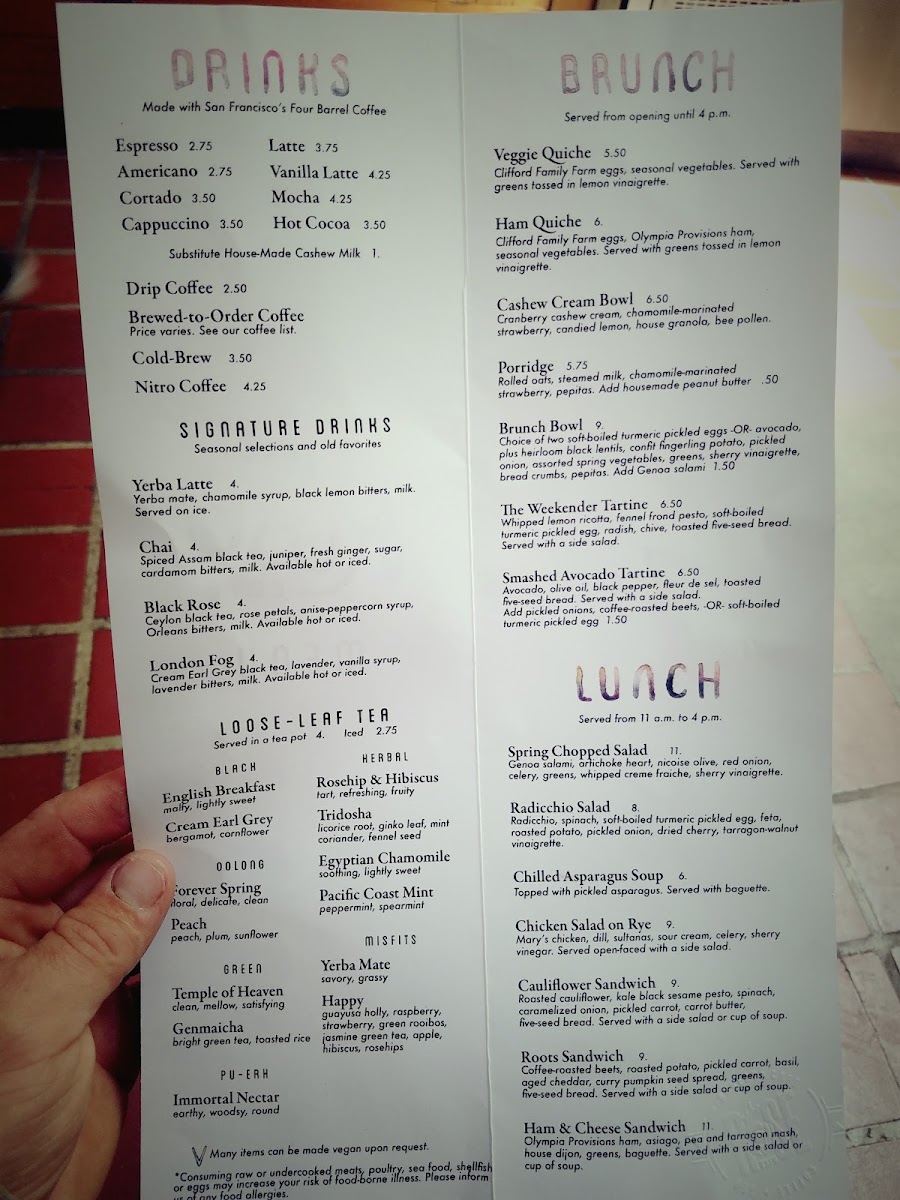 DRINKS
Made with San Francisco's Four Barrel Coffee
Espresso 2.75
Americano 2.75
Cortado 3.50
Cappuccino 3.50
Latte 3.75
Vanilla Latte 4.25
Mocha 4.25
Hot Cocoa 3.50
Substitute House-Made Cashew Milk 1.
Drip Coffee 2.50
Brewed-to-Order Coffee
Price varies. See our coffee list.
Cold-Brew 3.50
Nitro Coffee 4.25
SIGNATURE DRINKS
Seasonal selections and old favorites
Yerba Latte 4.
Yerba mate, chamomile syrup, black lemon bitters, milk.
Served on ice.
Chai 4.
Spiced Assam black tea, juniper, fresh ginger, sugar,
cardamom bitters, milk. Available hot or iced.
Black Rose 4.
Ceylon black tea, rose petals, anise-peppercorn syrup,
Orleans bitters, milk. Available hot or iced.
London Fog 4.
Cream Earl Grey black tea, lavender, vanilla syrup,
lavender bitters, milk. Available hot or iced.
LOOSE-LEAF TEA
Served in a tea pot 4. Iced 2.75
BLACK
English Breakfast
malty, lightly sweet
Cream Earl Grey
bergamot, cornflower
OOLONG
Forever Spring
floral, delicate, clean
Peach
peach, plum, sunflower
GREEN
Temple of Heaven
clean, mellow, satisfying
Genmaicha
bright green tea, toasted rice
PU-ERH
Immortal Nectar
earthy, woodsy, round
HERBAL
Rosehip & Hibiscus
tart, refreshing, fruity
Tridosha
licorice root, ginko leaf, mint
coriander, fennel seed
Egyptian Chamomile
soothing, lightly sweet
Pacific Coast Mint
peppermint, spearmint
MISFITS
Yerba Mate
savory, grassy
Happy
guayusa holly, raspberry,
strawberry, green rooibos,
jasmine green tea, apple,
hibiscus, rosehips
V Many items can be made vegan upon request.
*Consuming raw or undercooked meats, poultry, sea food, shellfish
or eggs may increase your risk of food-borne illness. Please inform
us of any food allergies.
BRUNCH
Served from opening until 4 p.m.
Veggie Quiche 5.50
Clifford Family Farm eggs, seasonal vegetables. Served with
greens tossed in lemon vinaigrette.
Ham Quiche 6.
Clifford Family Farm eggs, Olympia Provisions ham,
seasonal vegetables. Served with greens tossed in lemon
vinaigrette.
Cashew Cream Bowl 6.50
Cranberry cashew cream, chamomile-marinated
strawberry, candied lemon, house granola, bee pollen.
Porridge 5.75
Rolled oats, steamed milk, chamomile-marinated
strawberry, pepitas. Add housemade peanut butter .50
Brunch Bowl 9.
Choice of two soft-boiled turmeric pickled eggs -OR- avocado,
plus heirloom black lentils, confit fingerling potato, pickled
onion, assorted spring vegetables, greens, sherry vinaigrette,
bread crumbs, pepitas. Add Genoa salami 1.50
The Weekender Tartine 6.50
Whipped lemon ricotta, fennel frond pesto, soft-boiled
turmeric pickled egg, radish, chive, toasted five-seed bread.
Served with a side salad.
Smashed Avocado Tartine 6.50
Avocado, olive oil, black pepper, fleur de sel, toasted
five-seed bread. Served with a side salad.
Add pickled onions, coffee-roasted beets, -OR- soft-boiled
turmeric pickled egg 1.50
LUNCH
Served from 11 a.m. to 4 p.m.
Spring Chopped Salad 11.
Genoa salami, artichoke heart, nicoise olive, red onion,
celery, greens, whipped creme fraiche, sherry vinaigrette.
Radicchio Salad 8.
Radicchio, spinach, soft-boiled turmeric pickled egg, feta,
roasted potato, pickled onion, dried cherry, tarragon-walnut
vinaigrette.
Chilled Asparagus Soup 6.
Topped with pickled asparagus. Served with baguette.
Chicken Salad on Rye 9.
Mary's chicken, dill, sultanas, sour cream, celery, sherry
vinegar. Served open-faced with a side salad.
Cauliflower Sandwich 9.
Roasted cauliflower, kale black sesame pesto, spinach,
caramelized onion, pickled carrot, carrot butter,
five-seed bread. Served with a side salad or cup of soup.
Roots Sandwich 9.
Coffee-roasted beets, roasted potato, pickled carrot, basil,
aged cheddar, curry pumpkin seed spread, greens,
five-seed bread. Served with a side salad or cup of soup.
Ham & Cheese Sandwich 11.
Olympia Provisions ham, asiago, pea and tarragon mash,
house dijon, greens, baguette. Served with a side salad or
cup of soup.